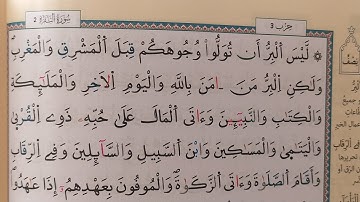 حزب 3
سورة البقرة 2
۞ لَّيْسَ اَ۬لْبِرُّ أَن تُوَلُّواْ وُجُوهَكُمْ قِبَلَ اَ۬لْمَشْرِقِ وَالْمَغْرِبِۖ
وَلَٰكِنِ اِ۬لْبِرُّ مَنَ اٰمَنَ بِاللَّهِ وَالْيَوْمِ اِ۬لَاخِرِ وَالْمَلَٰٓئِكَةِ
وَالْكِتَٰبِ وَالنَّبِيٓـِٕينَ وَءَاتَي اَ۬لْمَالَ عَلَىٰ حُبِّهِۦ ذَوِے اِ۬لْقُرْبَىٰ
وَالْيَتَٰمَىٰ وَالْمَسَٰكِينَ وَابْنَ اَ۬لسَّبِيلِ وَالسَّآئِلِينَ وَفِے اِ۬لرِّقَابِ
وَأَقَامَ اَ۬لصَّلَوٰةَ وَءَاتَي اَ۬لزَّكَوٰةَۖ وَالْمُوفُونَ بِعَهْدِهِمُۥٓ إِذَا عَٰهَدُواْۖ